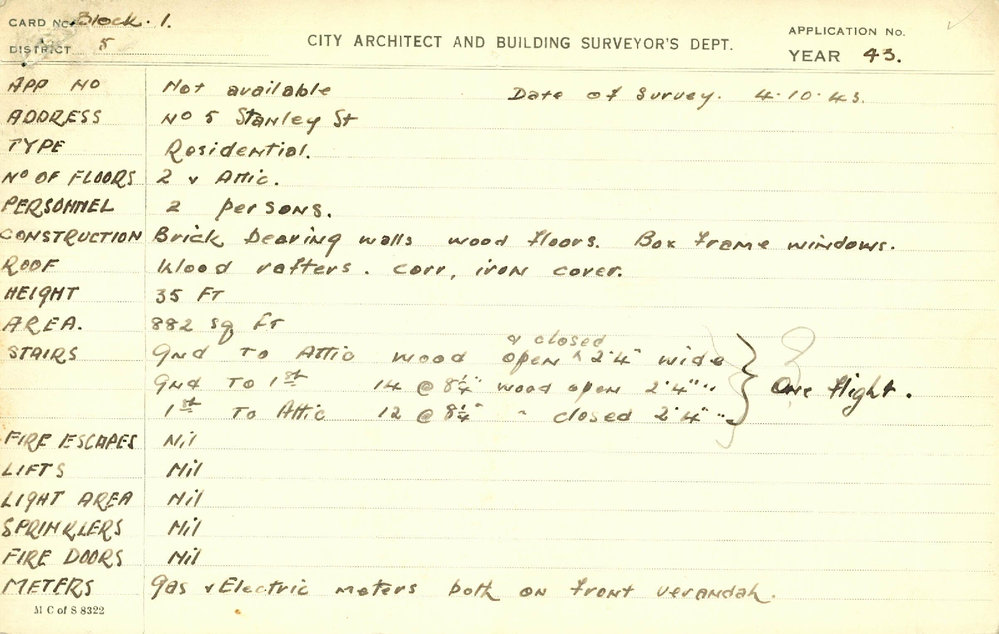 CARD No. Block. 1.
DISTRICT 5
CITY ARCHITECT AND BUILDING SURVEYOR'S DEPT.
APPLICATION No.
YEAR 43.
APP NO Not available Date of Survey. 4.10.43.
ADDRESS No 5 Stanley St
TYPE Residential.
No OF FLOORS 2 & Attic.
PERSONNEL 2 persons.
CONSTRUCTION Brick bearing walls wood floors. Box frame windows.
ROOF Wood rafters. corr, iron cover.
HEIGHT 35 FT
AREA. 882 sq ft
& closed
STAIRS Gnd To Attic wood open ^ 2'4" wide
Gnd To 1st 14 @ 8¼" wood open 2'4" " } One flight.
1st To Attic 12 @ 8¼" " closed 2'4" "
FIRE ESCAPES Nil
LIFTS Nil
LIGHT AREA Nil
SPRINKLERS Nil
FIRE DOORS Nil
METERS Gas & Electric meters both on front verandah.
M C of S 8322